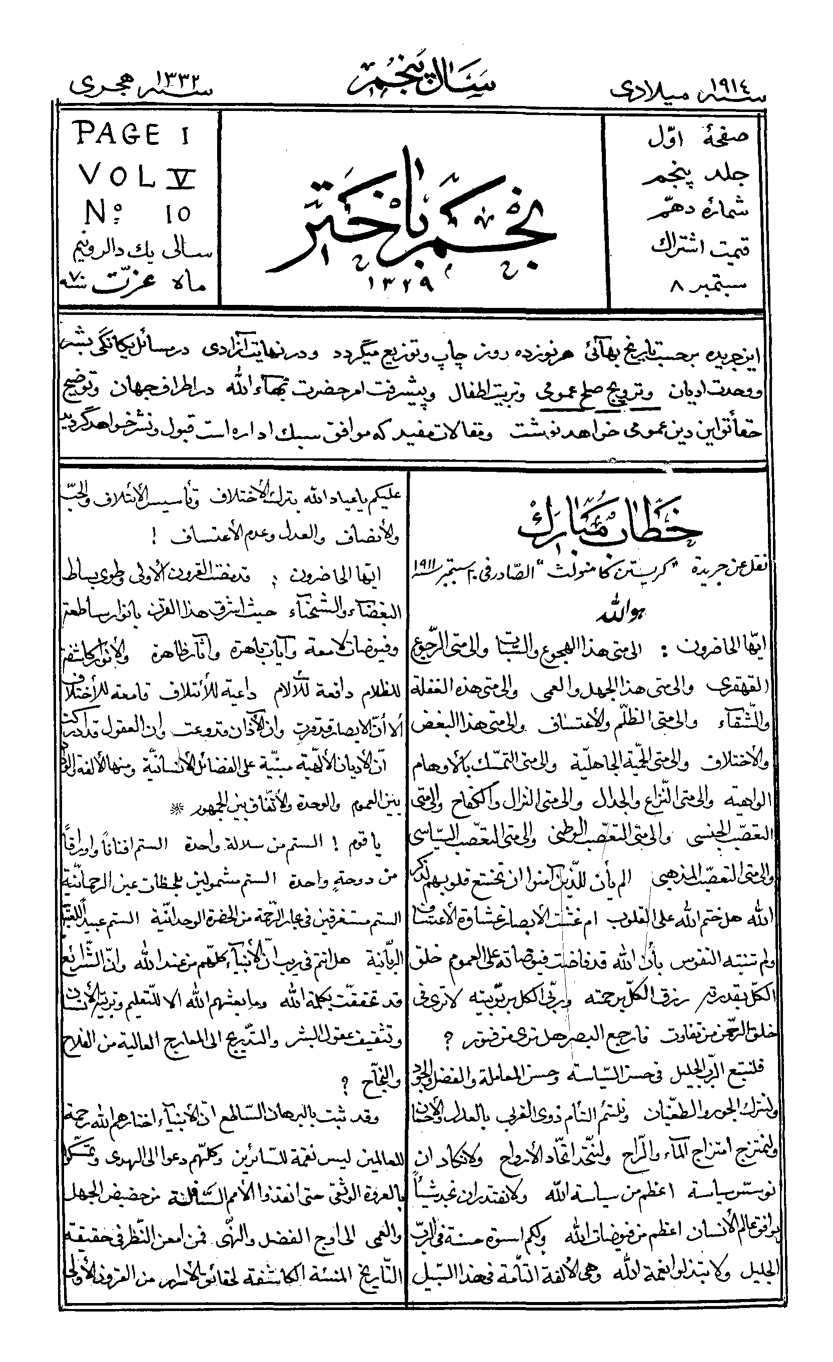 سنه ١٩١٤ ميلادى
سَنال پَنجُم
سنه ١٣٣٢ هجرى
صفحهٔ اوّل
جلد پنجم
شمارهٔ دهم
قيمت اشتراك
سپتمبر ٨
نجم باختر
١٣٢٩
PAGE I
VOL V
Nº 10
سالى يك دالر ونيم
ماه عزّت سنه ٧٠
اين جريده برحسب تاريخ بهائى هر نوزده روز چاپ وتوزيع ميگردد ودر نهايت آزادى در مسائل يگانگى بشر
ووحدت اديان وترويج صلح عمومى وتربيت اطفال وپيشرفت امر حضرت بهاءالله در اطراف جهان وتوضيح
حقائق اين دين عمومى خواهد نوشت ومقالات مفيد كه موافق سبك اداره است قبول ونشر خواهد گرديد
خطاب مبارك
نقل عن جريدة "كريستن كامنولث" الصادر فى ٢٠ سپتمبر سنه ١٩١١
هوالله
ايّها الحاضرون : الى متى هذا الهجوع والسبات والى متى الرّجوع
القهقرى والى متى هذا الجهل والعمى والى متى هذه الغفلة
والشّقاء والى متى الظّلم والاعتساف والى متى هذا البغض
والاختلاف والى متى الحميّة الجاهلية والى متى التمسّك بالاوهام
الواهية والى متى النّزاع والجدال والى متى النزال والكفاح والى متى
التعصّب الجنسى والى متى التعصّب الوطنى والى متى التعصّب السّياسى
والى متى التعصّب المذهبى الم يأن للّذين آمنوا ان تخشع قلوبهم لذكر
الله هل ختم الله على القلوب ام غشت الابصار غشاوة الاعتساف
او لم تنتبه النفوس بأن الله قد فاضت فيوضاته على العموم خلق
الكلّ بقدرته ورزق الكلّ برحمته وربّى الكلّ بربوبيته لا ترى فى
خلق الرحمن من تفاوت فارجع البصر هل ترى من فتور ؟
فلنتّبع الربّ الجليل فى حسن السّياسة وحسن المعاملة والفضل والجود
ولنترك الجور والطغيان ولنلتئم التئام ذوى القربى بالعدل والاحسان
ولنمتزج امتزاج الماء والرّاح ولنتّحد اتّحاد الأرواح ولا نكاد ان
نؤسّس سياسة اعظم من سياسة الله ولا نقتدر ان نجد شيئاً
يوافق عالم الانسان اعظم من فيوضات الله ولكم اسوة حسنة فى الربّ
الجليل ولا تبدلوا نعمة الله وهى الألفة التامّة فى هذا السّبيل
عليكم يا عباد الله بترك الاختلاف وتأسيس الائتلاف والحبّ
والانصاف والعدل وعدم الاعتساف !
ايّها الحاضرون : قد مضت القرون الاولى وطوى بساط
البغضاء والشحناء حيث اشرق هذا القرن بانوار ساطعة
وفيوضات لامعة وآيات باهرة وآثار ظاهرة والانوار كاشفة
للظلام دافعة للآلام داعية للائتلاف قامعة للاختلاف
الا انّ الابصار قد قرت وان الآذان قد وعت وان العقول قد ادركت
انّ الاديان الالهية مبنيّة على الفضائل الانسانيّة ومنها الألفة والودّ
بين العموم والوحدة والاتّفاق بين الجمهور *
يا قوم ! الستم من سلالة واحدة الستم افناناً واوراقاً
من دوحة واحدة الستم مشمولين بلحظات عين الرحمانيّة
الستم مستغرقين فى بحار الرّحمة من الحضرة الوحدانيّة الستم عبيداً للعتبة
الربّانية هل انتم فى ريب انّ الانبياء كلّهم من عند الله وانّ الشّرائع
قد تحققت بكلمة الله وما بعثهم الله الا للتعليم وتربية الانسان
وتثقيف عقول البشر والتدرّج الى المعارج العالية من الفلاح
والنجاح ؟
وقد ثبت بالبرهان السّاطع انّ الانبياء اختارهم الله رحمة
للعالمين ليس نقمة للسّائرين وكلّهم دعوا الى الهدى وتمسّكوا
بالعروة الوثقى حتى انقذوا الامم السّافلة من حضيض الجهل
والعمى الى اوج الفضل والنّهى فمن امعن النّظر فى حقيقة
التّاريخ المنبئة الكاشفة لحقائق الأسرار من القرون الأولى